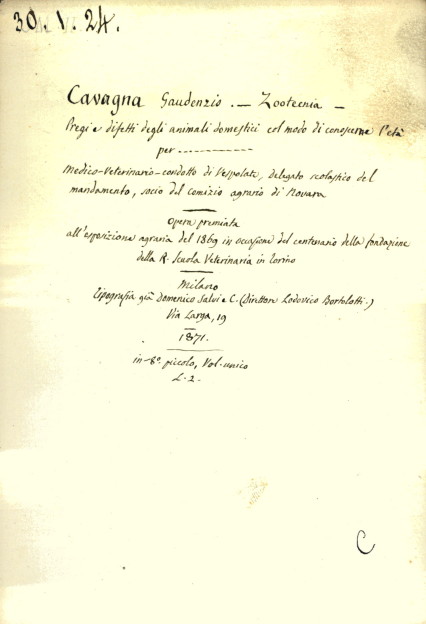 30.V.24.
Cavagna Gaudenzio. — Zootecnia —
Pregi e difetti degli animali domestici col modo di conoscerne l'età
per ------------
Medico-Veterinario-condotto di Vespolate, delegato scolastico del
mandamento, socio del comizio agrario di Novara
Opera premiata
all'esposizione agraria del 1869 in occasione del centenario della fondazione
della R. Scuola Veterinaria in Torino
Milano
Tipografia già Domenico Salvi e C. (Direttore Lodovico Bortolotti.)
Via Larga, 19
1871.
in-8º. piccolo, Vol. unico
L. 2.
C